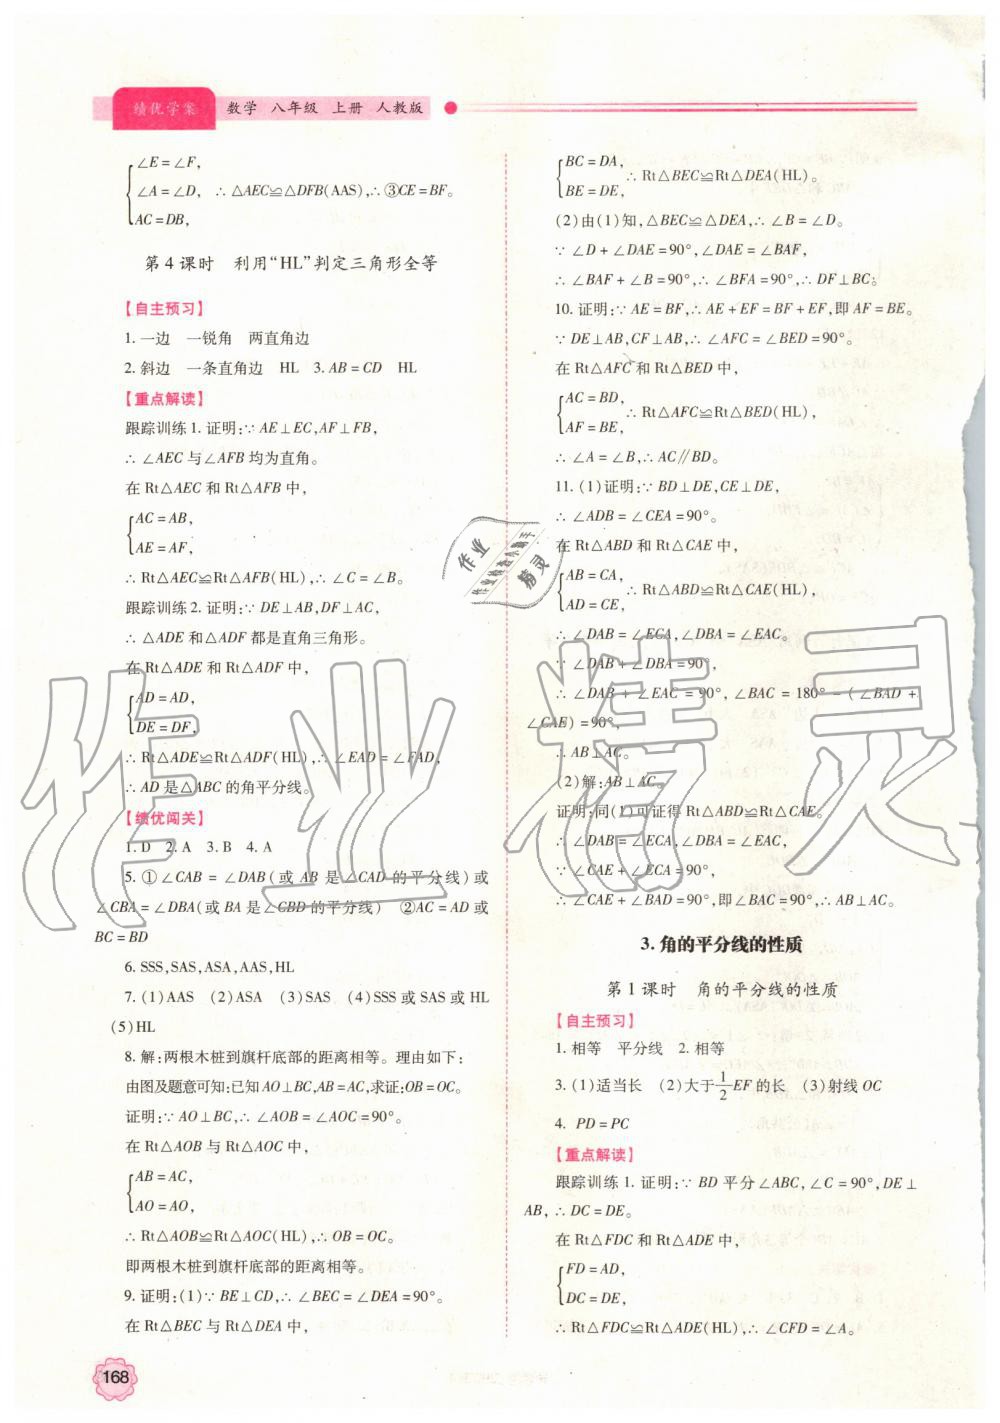 绩优学案 数学 八年级 上册 人教版
∠E=∠F,
∠A=∠D, ∴△AEC≌△DFB(AAS),∴③CE=BF。
AC=DB,
第4课时 利用“HL”判定三角形全等
【自主预习】
1. 一边 一锐角 两直角边
2. 斜边 一条直角边 HL 3. AB=CD HL
【重点解读】
跟踪训练1. 证明:∵AE⊥EC,AF⊥FB,
∴∠AEC与∠AFB均为直角。
在Rt△AEC和Rt△AFB中,
AC=AB,
AE=AF,
∴Rt△AEC≌Rt△AFB(HL),∴∠C=∠B。
跟踪训练2. 证明:∵DE⊥AB,DF⊥AC,
∴△ADE和△ADF都是直角三角形。
在Rt△ADE和Rt△ADF中,
AD=AD,
DE=DF,
∴Rt△ADE≌Rt△ADF(HL),∴∠EAD=∠FAD,
∴AD是△ABC的角平分线。
【绩优闯关】
1. D 2. A 3. B 4. A
5. ①∠CAB=∠DAB(或AB是∠CAD的平分线)或
∠CBA=∠DBA(或BA是∠CBD的平分线) ②AC=AD或
BC=BD
6. SSS,SAS,ASA,AAS,HL
7. (1)AAS (2)ASA (3)SAS (4)SSS或SAS或HL
(5)HL
8. 解:两根木桩到旗杆底部的距离相等。理由如下:
由图及题意可知:已知AO⊥BC,AB=AC,求证:OB=OC。
证明:∵AO⊥BC,∴∠AOB=∠AOC=90°。
在Rt△AOB与Rt△AOC中,
AB=AC,
AO=AO,
∴Rt△AOB≌Rt△AOC(HL),∴OB=OC。
即两根木桩到旗杆底部的距离相等。
9. 证明:(1)∵BE⊥CD,∴∠BEC=∠DEA=90°。
在Rt△BEC与Rt△DEA中,
BC=DA,
BE=DE, ∴Rt△BEC≌Rt△DEA(HL)。
(2)由(1)知,△BEC≌△DEA,∴∠B=∠D。
∵∠D+∠DAE=90°,∠DAE=∠BAF,
∴∠BAF+∠B=90°,∴∠BFA=90°,∴DF⊥BC。
10. 证明:∵AE=BF,∴AE+EF=BF+EF,即AF=BE。
∵DE⊥AB,CF⊥AB,∴∠AFC=∠BED=90°。
在Rt△AFC和Rt△BED中,
AC=BD,
AF=BE, ∴Rt△AFC≌Rt△BED(HL),
∴∠A=∠B,∴AC∥BD。
11. (1)证明:∵BD⊥DE,CE⊥DE,
∴∠ADB=∠CEA=90°。
在Rt△ABD和Rt△CAE中,
AB=CA,
AD=CE, ∴Rt△ABD≌Rt△CAE(HL),
∴∠DAB=∠ECA,∠DBA=∠EAC。
∵∠DAB+∠DBA=90°,
∴∠DAB+∠EAC=90°,∠BAC=180°-(∠BAD+
∠CAE)=90°,
∴AB⊥AC。
(2)解:AB⊥AC。
证明:同(1)可证得Rt△ABD≌Rt△CAE。
∴∠DAB=∠ECA,∠DBA=∠EAC,
∵∠CAE+∠ECA=90°,
∴∠CAE+∠BAD=90°,即∠BAC=90°,∴AB⊥AC。
3. 角的平分线的性质
第1课时 角的平分线的性质
【自主预习】
1. 相等 平分线 2. 相等
3. (1)适当长 (2)大于1/2EF的长 (3)射线OC
4. PD=PC
【重点解读】
跟踪训练1. 证明:∵BD平分∠ABC,∠C=90°,DE⊥
AB,∴DC=DE。
在Rt△FDC和Rt△ADE中,
FD=AD,
DC=DE,
∴Rt△FDC≌Rt△ADE(HL),∴∠CFD=∠A。
168
作业精灵
作业
精灵